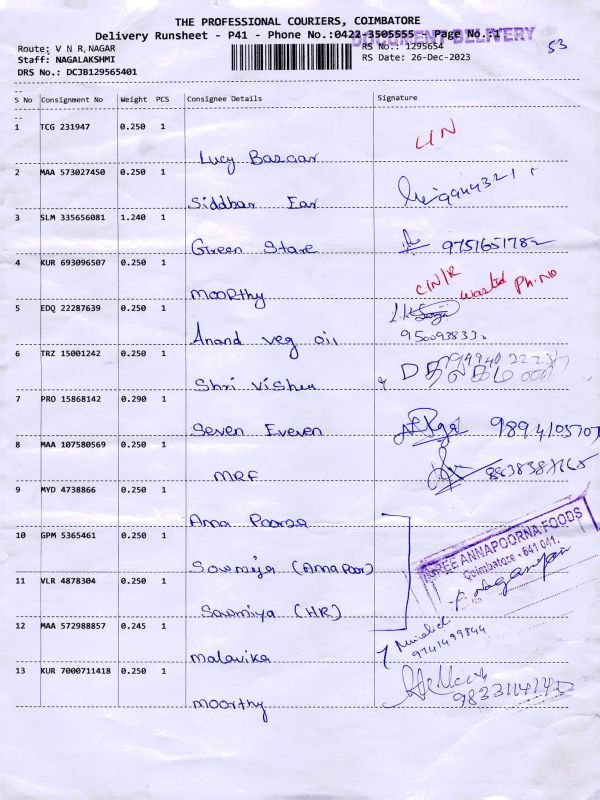 THE PROFESSIONAL COURIERS, COIMBATORE
Delivery Runsheet - P41 - Phone No.:0422-3505555 Page No.:1
DOCUMENT DELIVERY
53
Route: V N R NAGAR
RS No.: 1295654
Staff: NAGALAKSHMI
RS Date: 26-Dec-2023
DRS No.: DCJB129565401
S No Consignment No Weight PCS Consignee Details Signature
1 TCG 231947 0.250 1
Lucy Bazaar
2 MAA 573027450 0.250 1
Siddhar Ear
3 SLM 335656081 1.240 1
Green Stare 9751651782
4 KUR 693096507 0.250 1
Moorthy C/N/R wanted Ph.No
5 EDQ 22287639 0.250 1
Anand veg oil
6 TRZ 15001242 0.250 1
Shri Vishnu
7 PRO 15868142 0.290 1
Seven Eveven 9894105707
8 MAA 107580569 0.250 1
MRF
9 MYD 4738866 0.250 1
Anna Poorna
10 GPM 5365461 0.250 1
SREE ANNAPOORNA FOODS
Coimbatore - 641 041.
Sowmiya (AnnaPoor)
11 VLR 4878304 0.250 1
Sowmiya (HR)
12 MAA 572988857 0.245 1
9741499844
malavika
13 KUR 7000711418 0.250 1
moorthy